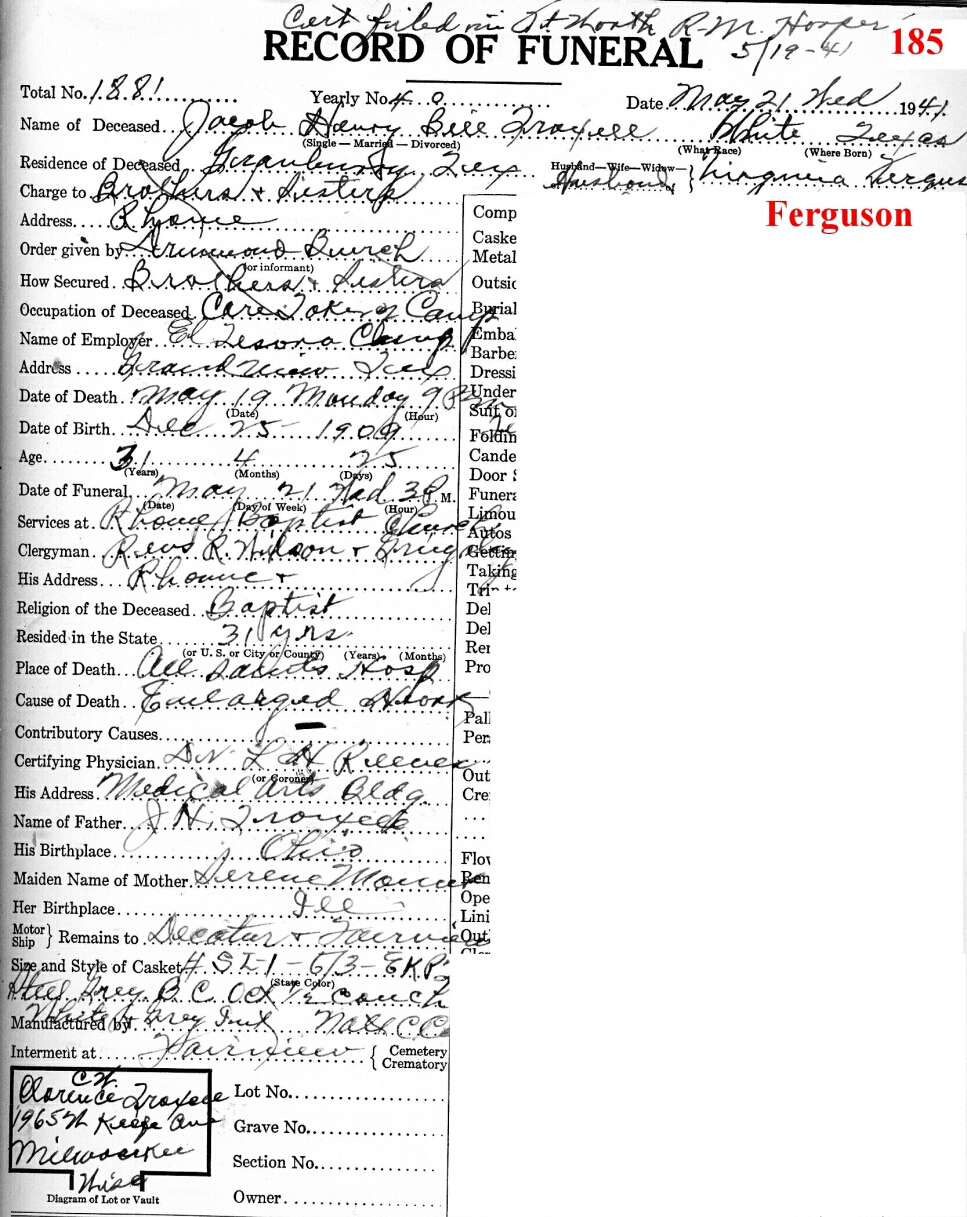 Cert filed in Ft Worth R.M. Hooper
5/19-41
185
RECORD OF FUNERAL
Total No. 1881 Yearly No. 40 Date May 21 Wed 1941
Name of Deceased Jacob Henry Bill Troxell White Texas
(Single — Married — Divorced) (What Race) (Where Born)
Residence of Deceased Granbury, Tex Husband—Wife—Widow— } Virginia Fergus
Husband
Charge to Brothers & Sisters
Ferguson
Address Rhome
Order given by Drummond Burch
(or informant)
How Secured Brothers & Sisters
Occupation of Deceased Care Taker of Camp
Name of Employer El Tesoro Camp
Address Grandview Tex
Date of Death May 19 Monday 9 P.M.
(Date) (Hour)
Date of Birth Dec 25 1909
Age 31 4 25
(Years) (Months) (Days)
Date of Funeral May 21 Wed 3 P.M.
(Date) (Day of Week) (Hour)
Services at Rhome Baptist Church
Clergyman Revs R. Wilson &
His Address Rhome &
Religion of the Deceased Baptist
Resided in the State 31 yrs.
(or U. S. or City or County) (Years) (Months)
Place of Death All Saints Hosp
Cause of Death Enlarged Heart
Contributory Causes —
Certifying Physician Dr. L H Reeves
(or Coroner)
His Address Medical Arts Bldg.
Name of Father J H. Troxell
His Birthplace Ohio
Maiden Name of Mother Serene
Her Birthplace Ill
Motor Ship } Remains to Decatur & Fairview
Size and Style of Casket
(State Color)
Steel Grey B.C. Oct 1/2 couch
Manufactured by White & Grey Int Natl C Co
Interment at Fairview { Cemetery Crematory
C.W.
Clarence Troxell
1965 N Keefe Ave
Milwaukee
Wisc
Diagram of Lot or Vault
Lot No.
Grave No.
Section No.
Owner
Comp
Caske
Metal
Outsid
Burial
Emba
Barbe
Dressi
Under
Suit o
Foldin
Cande
Door S
Funera
Limou
Autos
Gettin
Taking
Tri
Del
Del
Rer
Pro
Pall
Per
Out
Cre
Flov
Ren
Ope
Lini
Out